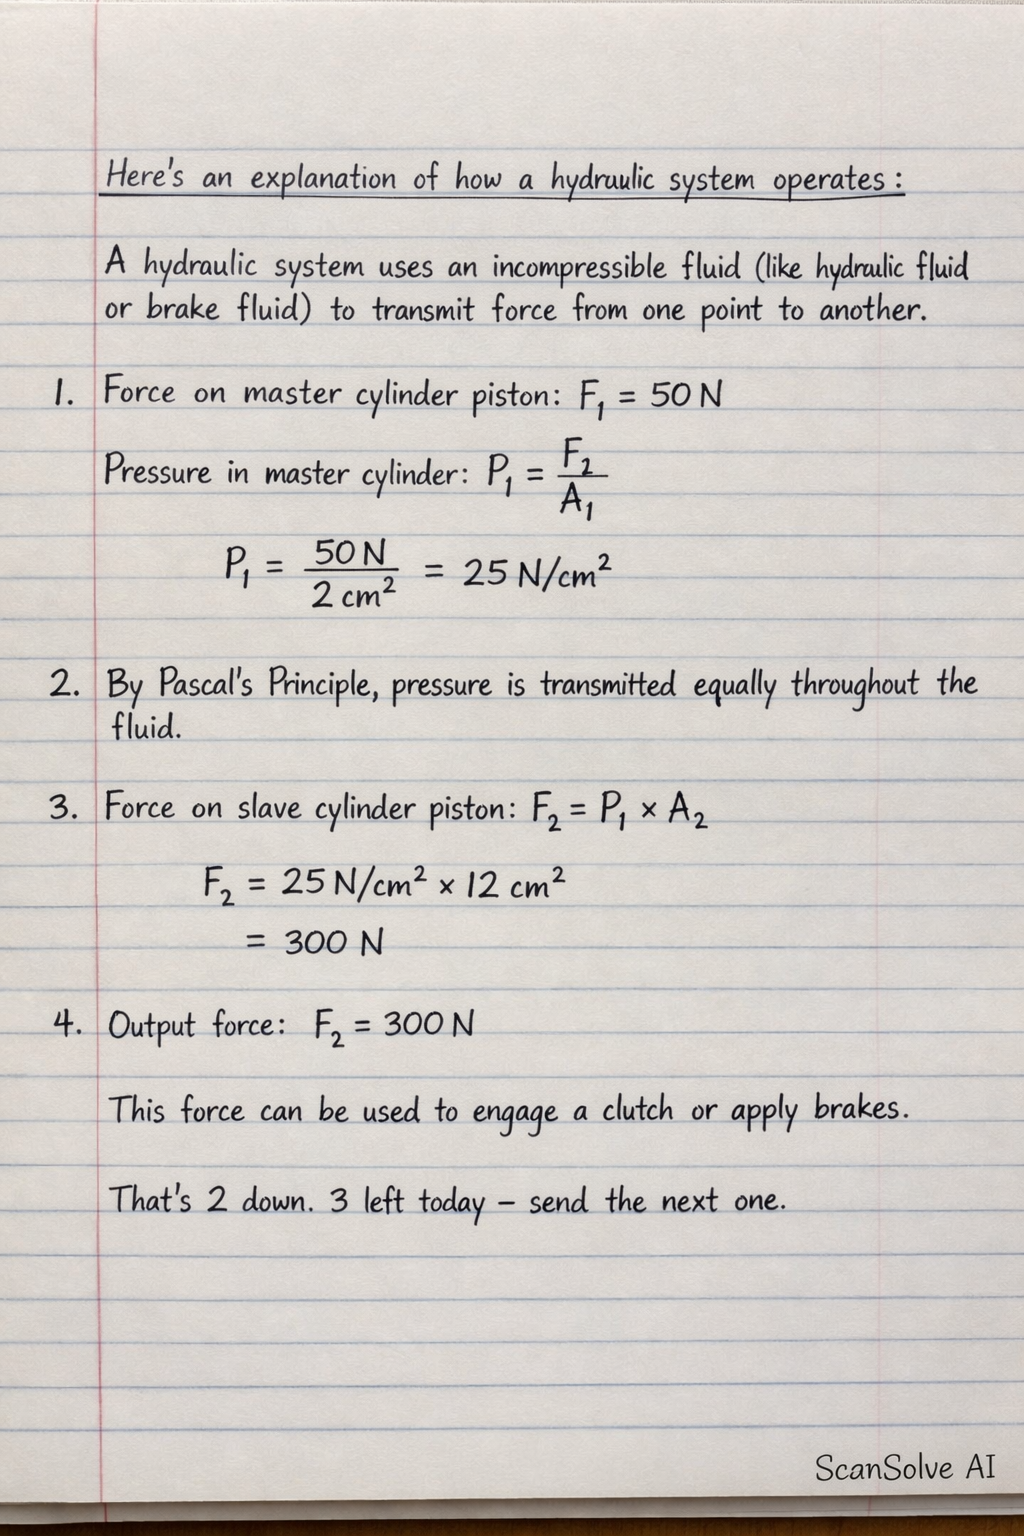 Here's an explanation of how a hydraulic system operates:
A hydraulic system uses an incompressible fluid (like hydraulic fluid
or brake fluid) to transmit force from one point to another.
1. Force on master cylinder piston: F₁ = 50 N
Pressure in master cylinder: P₁ = F₂/A₁
P₁ = 50 N / 2 cm² = 25 N/cm²
2. By Pascal's Principle, pressure is transmitted equally throughout the
fluid.
3. Force on slave cylinder piston: F₂ = P₁ × A₂
F₂ = 25 N/cm² × 12 cm²
= 300 N
4. Output force: F₂ = 300 N
This force can be used to engage a clutch or apply brakes.
That's 2 down. 3 left today – send the next one.
ScanSolve AI